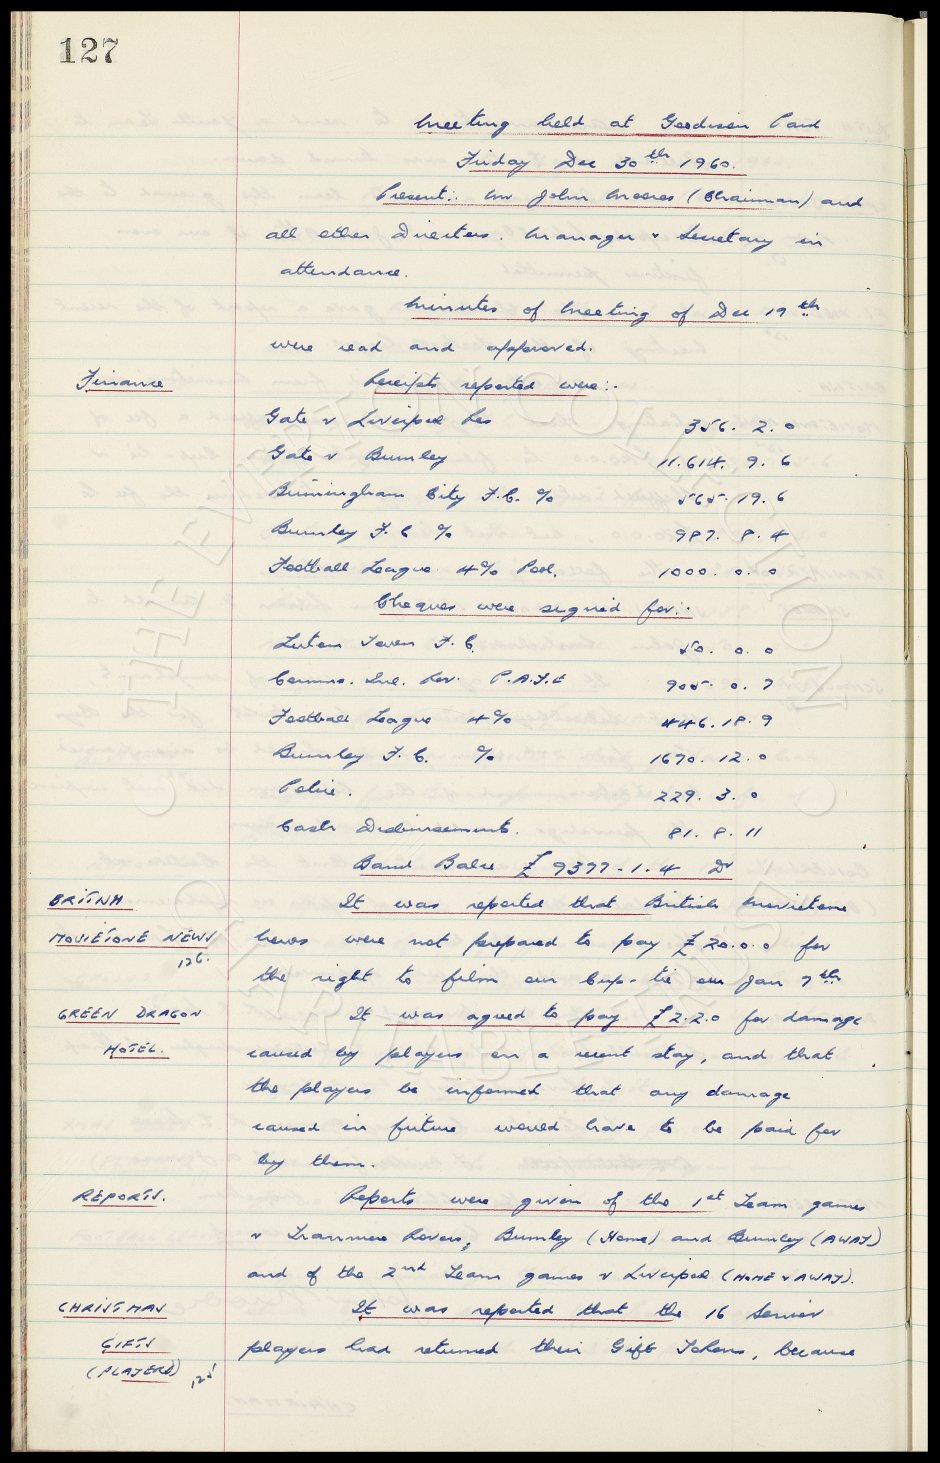 127
Meeting held at Goodison Park
Friday Dec 30th 1960.
Present:. Mr John Moores (Chairman) and
all other Directors. Manager & Secretary in
attendance.
Minutes of Meeting of Dec 19th
were read and approved.
Finance Receipts reported were:.
Gate v Liverpool Res 356. 2. 0
Gate v Burnley 11.614. 9. 6
Birmingham City F.C. % 565. 19. 6
Burnley F. C % 987. 8. 4
Football League 4% Pool. 1000. 0. 0
Cheques were signed for:.
Luton Town F. C. 50. 0. 0
Comms. Inl. Rev. P.A.Y.E 905. 0. 7
Football League 4% 446. 18. 9
Burnley F. C. % 1670. 12. 0
Police. 229. 3. 0
Cash Disbursements. 81. 8. 11
Bank Balce £9377-1.4 Dr
BRITISH It was reported that British Movietone
MOVIETONE NEWS News were not prepared to pay £20.0.0 for
126.
the right to film our Cup-tie on Jan 7th
GREEN DRAGON It was agreed to pay £2.2.0 for damage
HOTEL. caused by players on a recent stay, and that
the players be informed that any damage
caused in future would have to be paid for
by them.
REPORTS. Reports were given of the 1st Team games
v Tranmere Rovers, Burnley (Home) and Burnley (AWAY)
and of the 2nd Team games v Liverpool (HOME & AWAY).
CHRISTMAS It was reported that the 16 Senior
GIFTS players had returned their Gift Tokens, because
(PLAYERS) 125
THE EVERTON COLLECTION
CHARITABLE TRUST